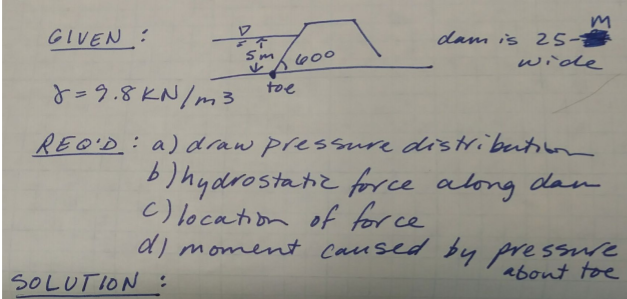 GIVEN :
▽
5m
600
toe
dam is 25-M
wide
γ = 9.8 KN/m3
REQ'D : a) draw pressure distribution
b) hydrostatic force along dam
c) location of force
d) moment caused by pressure
about toe
SOLUTION :